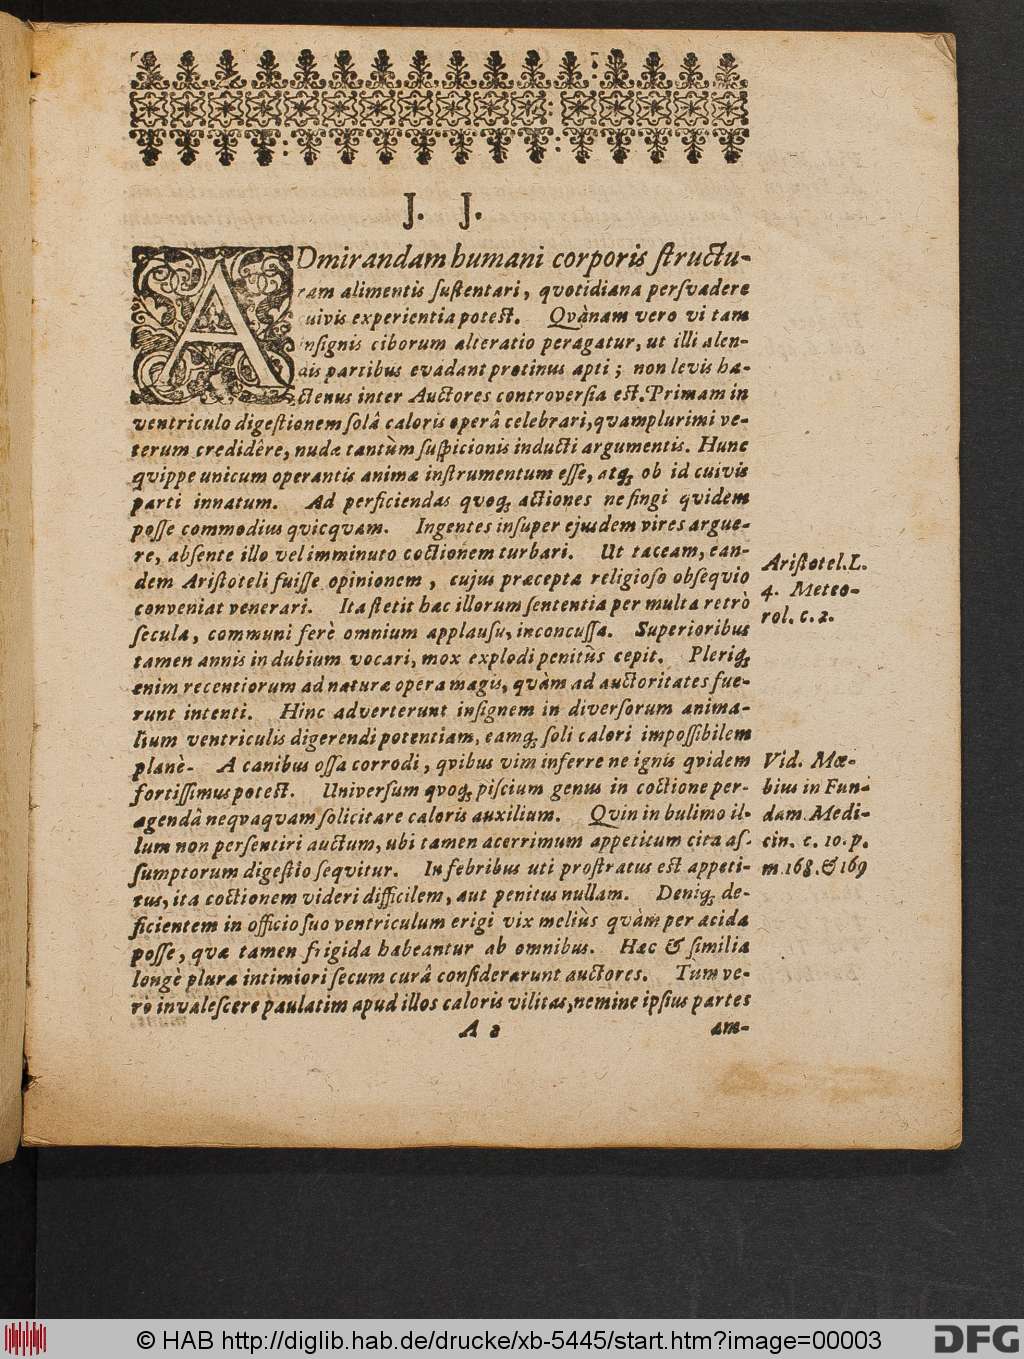 J. J.
ADmirandam humani corporis structu-
ram alimentis sustentari, quotidiana persvadere
cuivis experientia potest. Qvànam vero vi tam
insignis ciborum alteratio peragatur, ut illi alen-
dis partibus evadant protinus apti; non levis ha-
ctenus inter Auctores controversia est. Primam in
ventriculo digestionem solâ caloris operâ celebrari, quamplurimi ve-
terum credidêre, nudæ tantùm suspicionis inducti argumentis. Hunc
quippe unicum operantis animæ instrumentum esse, atq; ob id cuivis
parti innatum. Ad perficiendas quoq; actiones ne fingi quidem
posse commodius quicquam. Ingentes insuper ejusdem vires argue-
re, absente illo vel imminuto coctionem turbari. Ut taceam, ean-
dem Aristoteli fuisse opinionem, cujus præcepta religioso obsequio
conveniat venerari. Ita stetit hæc illorum sententia per multa retrò
secula, communi ferè omnium applausu, inconcussa. Superioribus
tamen annis in dubium vocari, mox explodi penitùs cepit. Pleriq;
enim recentiorum ad naturæ opera magis, quàm ad auctoritates fue-
runt intenti. Hinc adverterunt insignem in diversorum anima-
lium ventriculis digerendi potentiam, eamq; soli calori impossibilem
planè. A canibus ossa corrodi, qvibus vim inferre ne ignis qvidem
fortissimus potest. Universum qvoq; piscium genus in coctione per-
agendâ neqvaqvam solicitare caloris auxilium. Qvin in bulimo il-
lum non persentiri auctum, ubi tamen acerrimum appetitum cita as-
sumptorum digestio seqvitur. In febribus uti prostratus est appeti-
tus, ita coctionem videri difficilem, aut penitus nullam. Deniq; de-
ficientem in officio suo ventriculum erigi vix meliùs quàm per acida
posse, quæ tamen frigida habeantur ab omnibus. Hæc & similia
longè plura intimiori secum curâ considerarunt auctores. Tum ve-
rò invalescere paulatim apud illos caloris vilitas, nemine ipsius partes
A 2 am-
Aristotel. L.
4. Meteo-
rol. c. 2.
Vid. Mœ-
bius in Fun-
dam. Medi-
cin. c. 10. p.
m. 168. & 169
© HAB http://diglib.hab.de/drucke/xb-5445/start.htm?image=00003
DFG